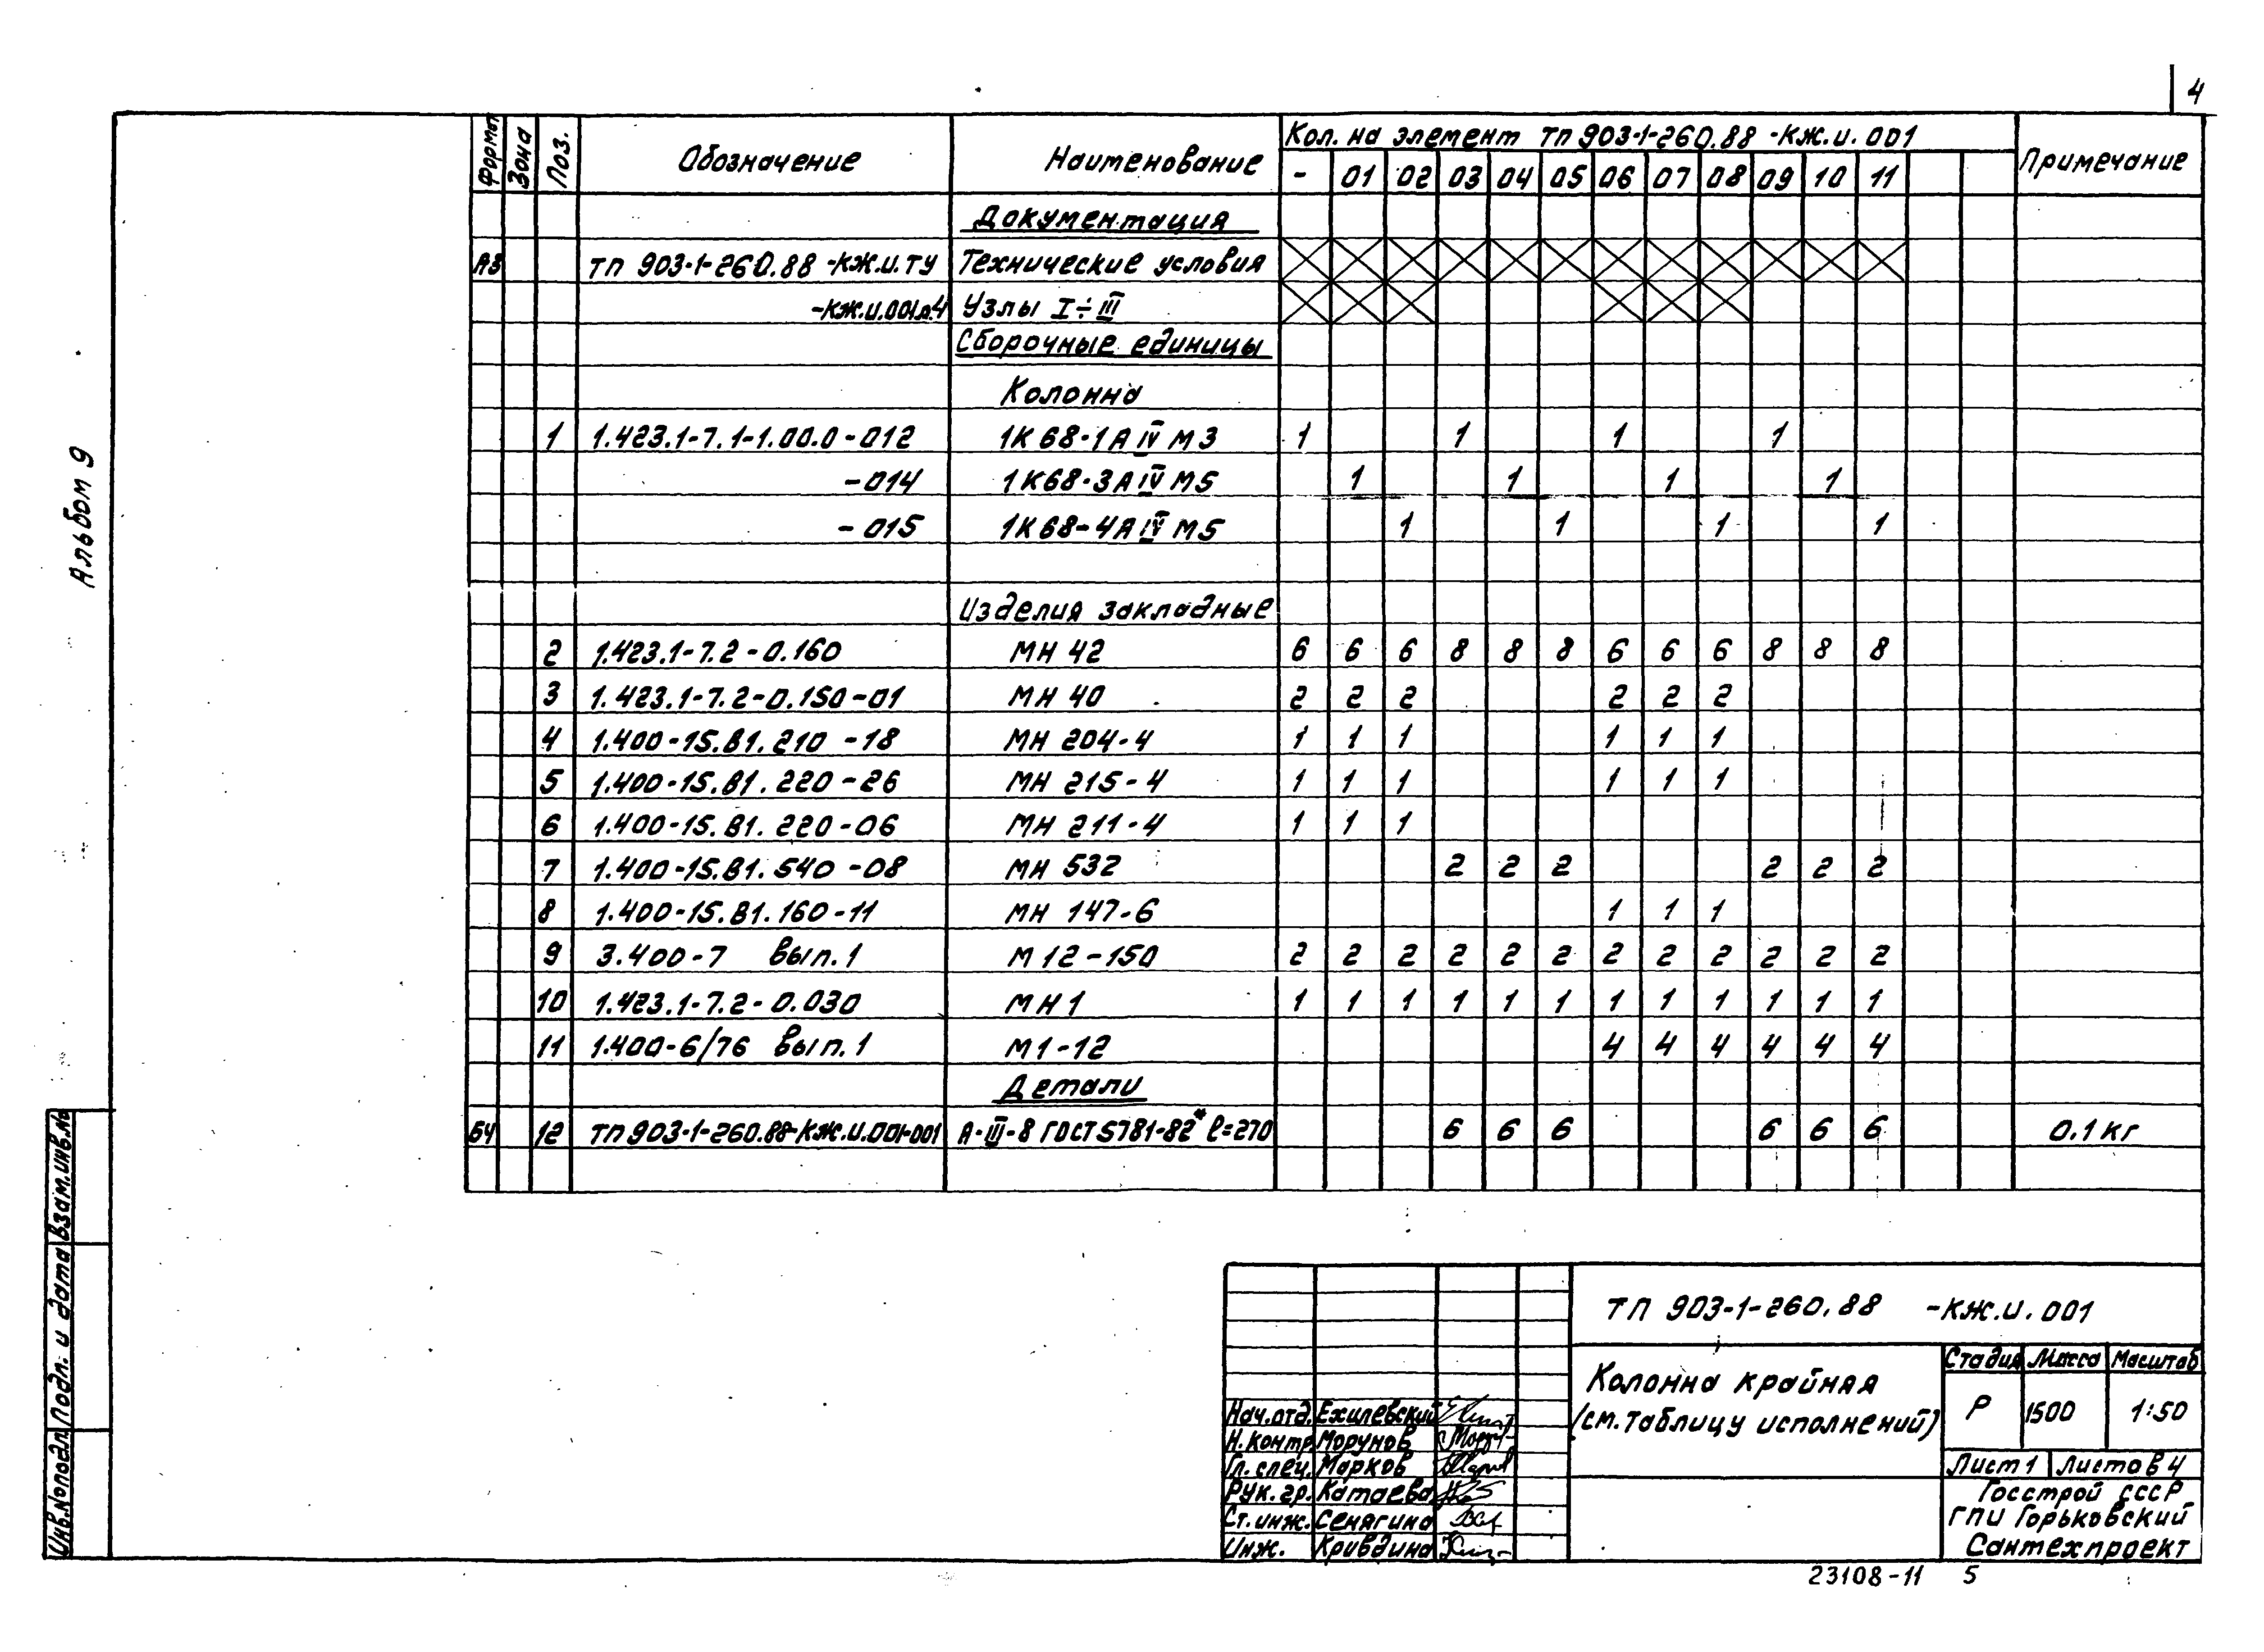 4
Альбом 9
Формат Зона Поз. Обозначение Наименование Кол. на элемент ТП 903-1-260.88 -КЖ.И.001 Примечание
- 01 02 03 04 05 06 07 08 09 10 11
Документация
А3 ТП 903-1-260.88 -КЖ.И.ТУ Технические условия
-КЖ.И.001л.4 Узлы I÷III
Сборочные единицы
Колонна
1 1.423.1-7.1-1.00.0-012 1К68-1АIVМ3 1 1 1 1
-014 1К68-3АIVМ5 1 1 1 1
-015 1К68-4АIVМ5 1 1 1 1
Изделия закладные
2 1.423.1-7.2-0.160 МН 42 6 6 6 8 8 8 6 6 6 8 8 8
3 1.423.1-7.2-0.150-01 МН 40 2 2 2 2 2 2
4 1.400-15.В1.210 -18 МН 204-4 1 1 1 1 1 1
5 1.400-15.В1.220-26 МН 215-4 1 1 1 1 1 1
6 1.400-15.В1.220-06 МН 211-4 1 1 1
7 1.400-15.В1.540 -08 МН 532 2 2 2 2 2 2
8 1.400-15.В1.160-11 МН 147-6 1 1 1
9 3.400-7 вып.1 М12-150 2 2 2 2 2 2 2 2 2 2 2 2
10 1.423.1-7.2-0.030 МН1 1 1 1 1 1 1 1 1 1 1 1 1
11 1.400-6/76 вып.1 М1-12 4 4 4 4 4 4
Детали
БЧ 12 ТП903-1-260.88-КЖ.И.001-001 А-III-8 ГОСТ5781-82* ℓ=270 6 6 6 6 6 6 0.1кг
Инв.№подл. Подп. и дата Взам.инв.№
ТП 903-1-260.88 -КЖ.И.001
Колонна крайняя
(см.таблицу исполнений)
Стадия Масса Масштаб
Р 1500 1:50
Лист1 Листов 4
Госстрой СССР
ГПИ Горьковский
Сантехпроект
Нач.отд. Ехилевский
Н.контр. Морунов
Гл.спец. Марков
Рук.гр. Катаева
Ст.инж. Сенягина
Инж. Кривдина
23108-11 5